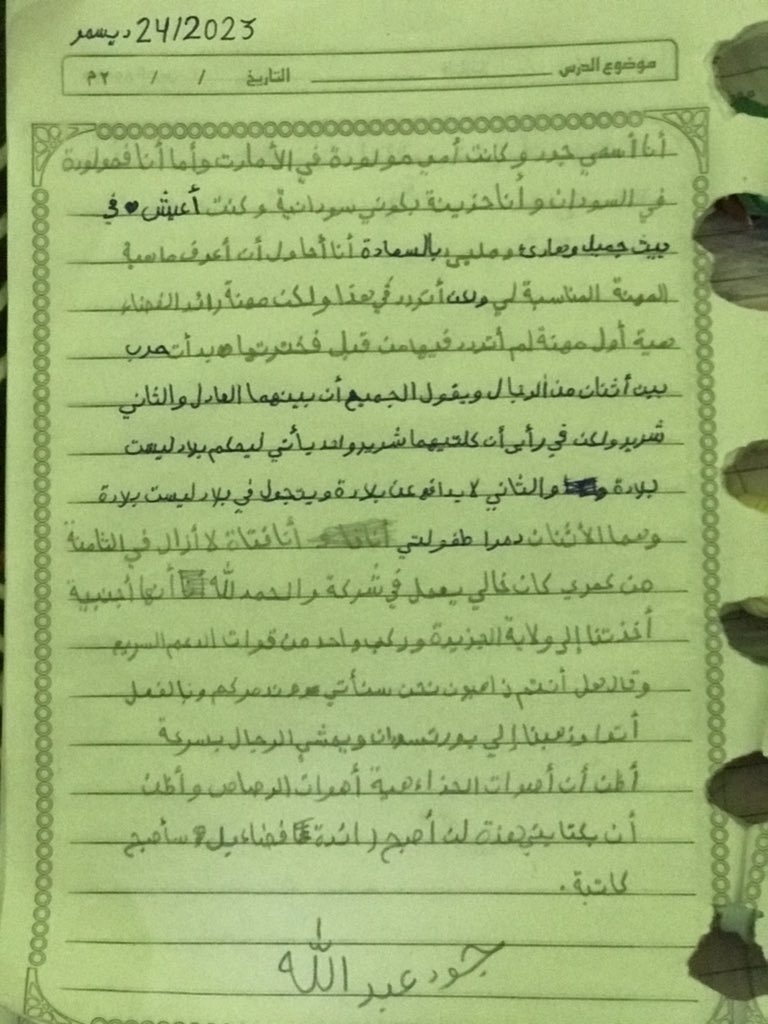 24/2023 ديسمر
موضوع الدرس التاريخ / / ٢م
أنا أسمي جود وكانت أمي مولودة في الأمارت وأما أنا فمولودة
في السودان وأنا حزينة بكوني سودانية وكنت أعيش في
بيت جميل وهادئ ومليئ بالسعادة أنا أحاول أن أعرف ماسبة
المهنة المناسبة لي ولكن أتردد في هذا ولكن مهنة رائد الفضاء
هية أول مهنة لم أتردد فيها من قبل فخترتها بدأت حرب
بين أثنان من الرجال ويقول الجميع أن بينهما العادل والثاني
شرير ولكن في رأي أن كلتيهما شرير واحد يأتي ليحكم بلاد ليست
بلادة والثاني لا يدافع عن بلادة ويتجول في بلاد ليست بلادة
وهما الأثنان دمرا طفولتي أنا فتاة لا أزال في الثامنة
من عمري كان خالي يعمل في شركة والحمد لله أنها أجنبية
أخذتنا إلى ولاية الجزيرة وركب واحد من قوات الدعم السريع
وقال هل أنتم ذاهبون نحن سنأتي عندكم وبالفعل
أتوا وذهبنا إلي بورتسودان ويمشي الرجال بسرعة
أظن أن أصوات الحذاء هية أصوات الرصاص وأظن
أن بكتابتي هذة لن أصبح رائدة فضاء بل سأصبح
كاتبة.
جود عبد الله